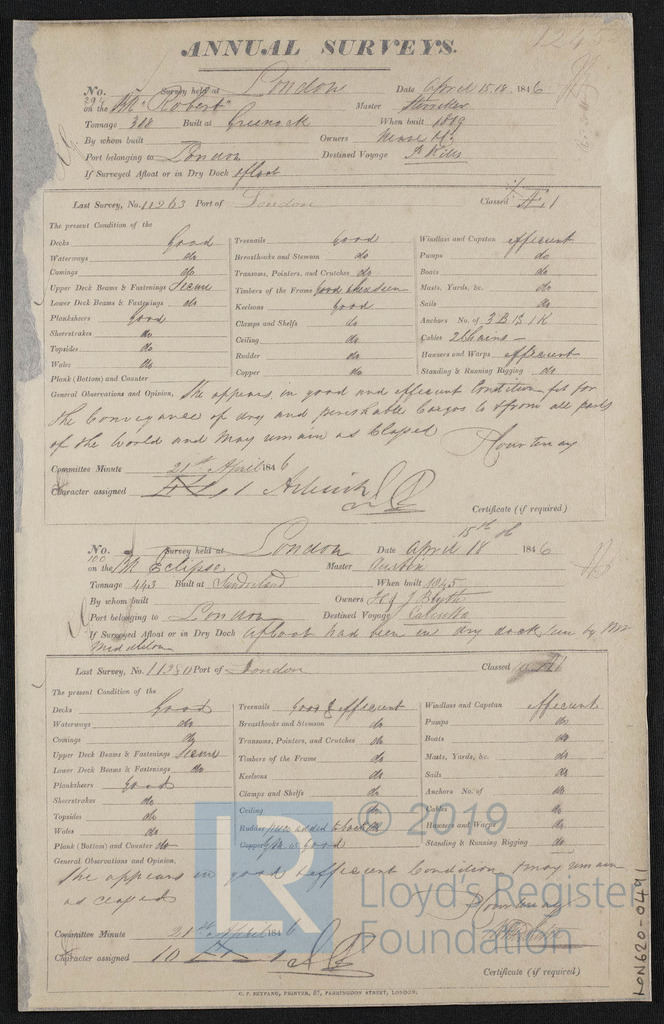 ANNUAL SURVEYS.
No. 294 Survey held at London Date April 15.18. 1846
on the Bk "Robert" Master
Tonnage 388 Built at Greenock When built 1819
By whom built Owners
Port belonging to London Destined Voyage
If Surveyed Afloat or in Dry Dock afloat
Last Survey, No. 11963 Port of London Classed Æ 1
The present Condition of the
Decks Good
Waterways do
Comings do
Upper Deck Beams & Fastenings Secure
Lower Deck Beams & Fastenings do
Planksheers Good
Sheerstrakes do
Topsides do
Wales do
Plank (Bottom) and Counter
Treenails Good
Breasthooks and Stemson do
Transoms, Pointers, and Crutches do
Timbers of the Frame Good when seen
Keelsons Good
Clamps and Shelfs do
Ceiling do
Rudder do
Copper do
Windlass and Capstan efficient
Pumps do
Boats do
Masts, Yards, &c. do
Sails do
Anchors No. of 3 B. 1 S 1 K
Cables 2 Chains
Hawsers and Warps efficient
Standing & Running Rigging do
General Observations and Opinion, She appears in good and efficient Condition fit for
the Conveyance of dry and perishable Cargos to & from all parts
of the World and may remain as Classed
Courtenay
Committee Minute 21st April 1846
Character assigned Æ 1
Certificate (if required)
No. 100 Survey held at London Date April 15th 16 18 1846
on the Bk Eclipse Master
Tonnage 443 Built at Sunderland When built 1845
By whom built Owners H & J Blyth
Port belonging to London Destined Voyage Calcutta
If Surveyed Afloat or in Dry Dock Afloat had been in dry dock seen by Mr
Middleton
Last Survey, No. 11380 Port of London Classed 10 A 1
The present Condition of the
Decks Good
Waterways do
Comings do
Upper Deck Beams & Fastenings Secure
Lower Deck Beams & Fastenings do
Planksheers Good
Sheerstrakes do
Topsides do
Wales do
Plank (Bottom) and Counter do
Treenails Good & efficient
Breasthooks and Stemson do
Transoms, Pointers, and Crutches do
Timbers of the Frame do
Keelsons do
Clamps and Shelfs do
Ceiling do
Rudder piece added to back
Copper Good
Windlass and Capstan efficient
Pumps do
Boats do
Masts, Yards, &c. do
Sails do
Anchors No. of do
Cables do
Hawsers and Warps do
Standing & Running Rigging do
General Observations and Opinion,
She appears in good & efficient Condition & may remain
as classed
Courtenay
Committee Minute 21st April 1846
Character assigned 10 A 1
Certificate (if required)
C. F. SEYFANG, PRINTER, 57, FARRINGDON STREET, LONDON.
LON620-0491
LR © 2019
Lloyd's Register
Foundation